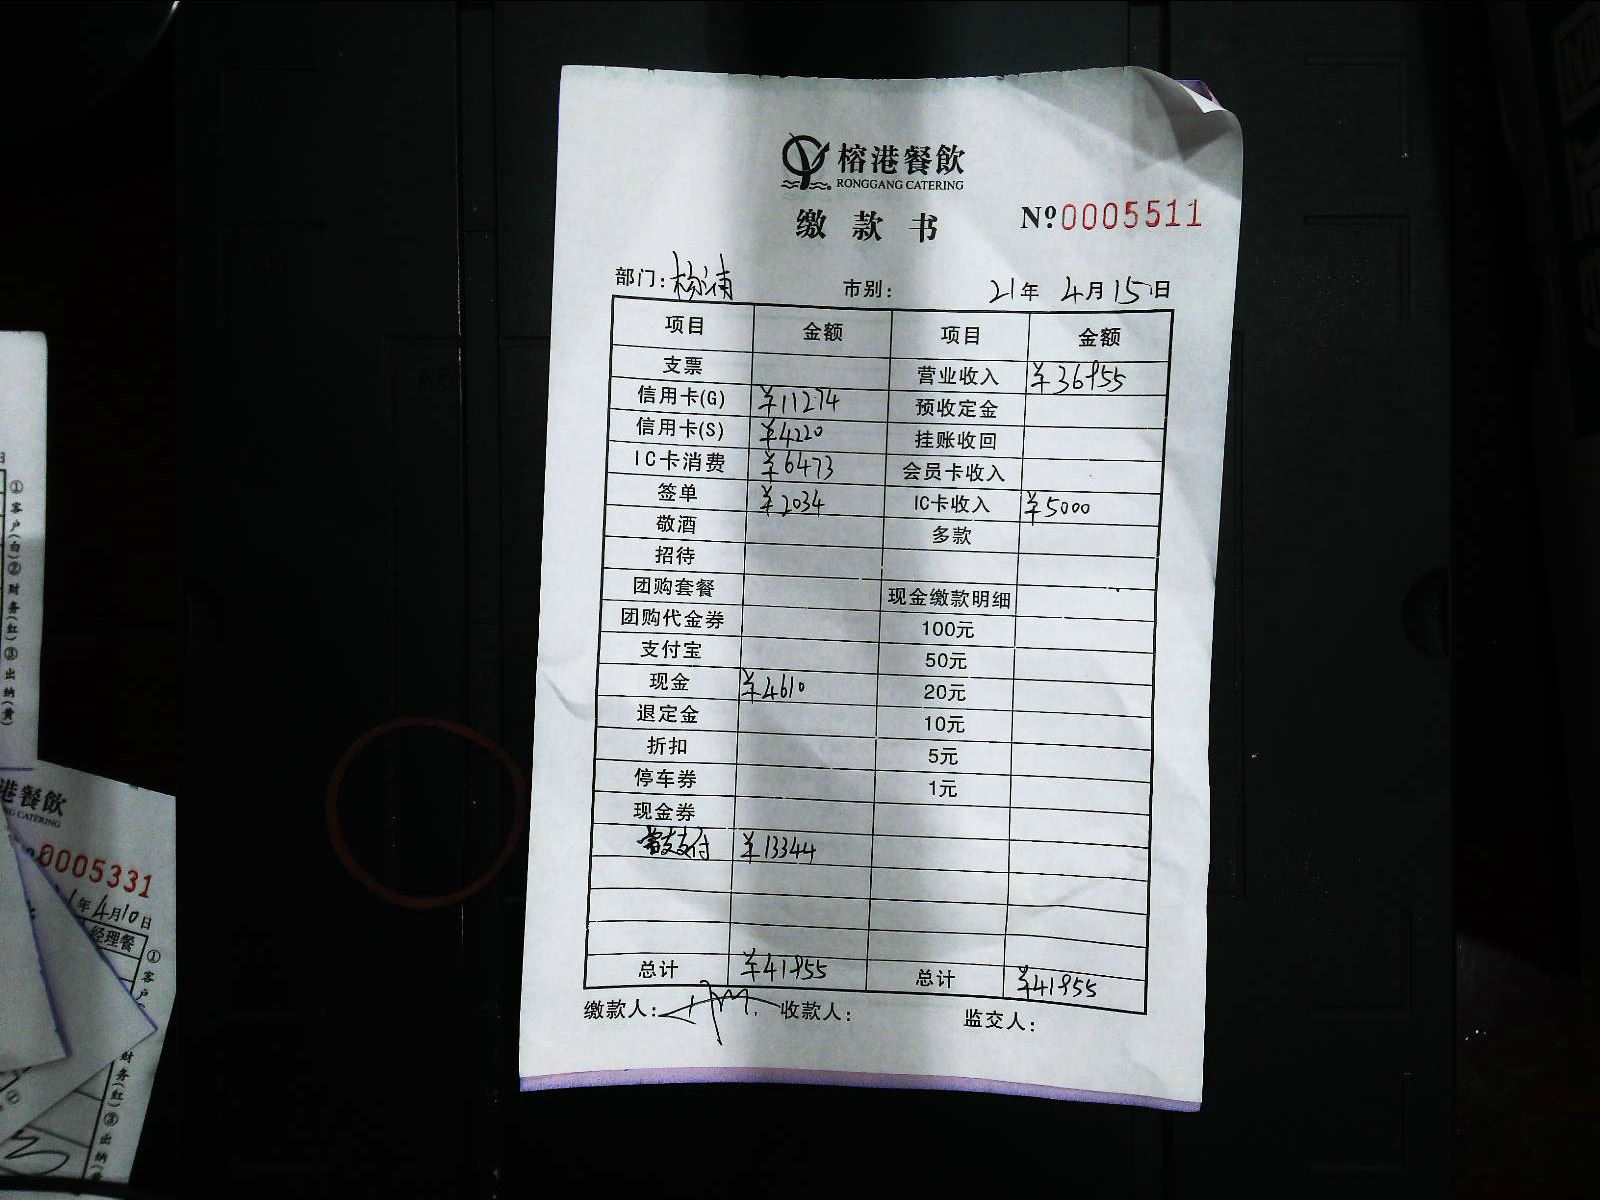 榕港餐飲
RONGGANG CATERING
缴款书 Nº 0005511
部门: 市别: 21年 4月15日
项目 金额 项目 金额
支票 营业收入 ¥36955
信用卡(G) ¥11274 预收定金
信用卡(S) ¥4220 挂账收回
IC卡消费 ¥6473 会员卡收入
签单 ¥2034 IC卡收入 ¥5000
敬酒 多款
招待
团购套餐 现金缴款明细
团购代金券 100元
支付宝 50元
现金 ¥4610 20元
退定金 10元
折扣 5元
停车券 1元
现金券
支付 ¥13344
总计 ¥41955 总计 ¥41955
缴款人: 收款人: 监交人:
①客户(白)②财务(红)③出纳(黄)
港餐飲
NG CATERING
0005331
年4月10日
经理餐
①客户
财务(红)③出纳(